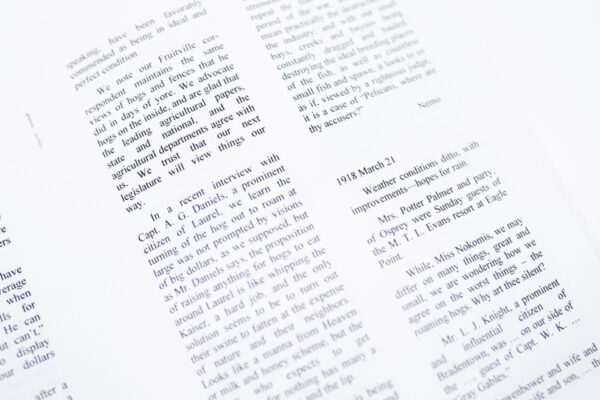 speaking, have been favorably
commended as being in ideal and
perfect condition.
We note our Fruitville cor-
respondent maintains the same
views of hogs and fences that he
did in days of yore. We advocate
hogs on the inside, and are glad that
the leading agricultural papers,
state and national, and the
agricultural departments agree with
us. We trust that our next
legislature will view things our
way.
In a recent interview with
Capt. A. G. Daniels, a prominent
citizen of Laurel, we learn the
turning of the hog out to roam at
large was not prompted by visions
of big dollars, as we supposed, but
as Mr. Daniels says, the proposition
of raising anything for hogs to eat
around Laurel is like whipping the
Kaiser, a hard job, and the only
solution seems to be to turn out
their swine to fatten at the expense
of nature and their neighbors.
Looks like a manna from Heaven
or milk and honey scheme, but the
who expects to get
for nothing has many a
and the lip.
is being
repeal the
period of war.
mean practically the destruction
the industry, with our
bays, creeks and bayous being
constantly dragged and hauled,
destroying the ideal breeding places
of the fish, as well as countless
small fish and spawn, it looks to us
as if, viewed by a righteous judge,
it is a case of "Pelicans, where are
thy accusers?"
Nemo
1918 March 21
Weather conditions ditto, with
improvements—hopes for rain.
Mrs. Potter Palmer and party,
of Osprey were Sunday guests of
the M. T. L. Evans resort at Eagle
Point.
While, Miss Nokomis, we may
differ on many things, great and
small, we are wondering how we
agree on the worst things – the
roaming hogs. Why art thee silent?
Mr. L. J. Knight, a prominent
and influential citizen of
Bradentown, was … on our side of
the … guest of Capt. W. K. …
"Gray Gables."
wife and son, … the
have
when
lls for
He can
out can't,"
to display
our dollars
after a